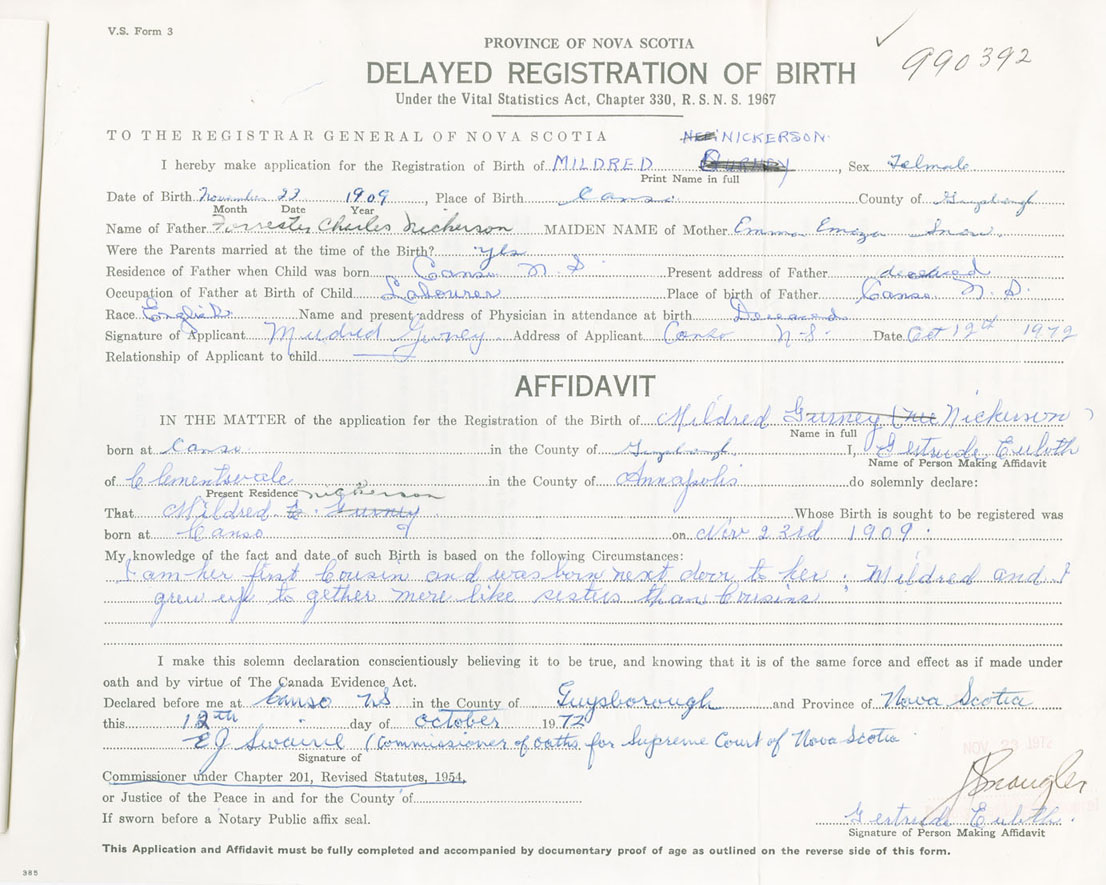 V.S. Form 3
PROVINCE OF NOVA SCOTIA
990392
DELAYED REGISTRATION OF BIRTH
Under the Vital Statistics Act, Chapter 330, R.S.N.S. 1967
TO THE REGISTRAR GENERAL OF NOVA SCOTIA NICKERSON
I hereby make application for the Registration of Birth of MILDRED Gurney, Sex Felmale
Print Name in full
Date of Birth November 23 1909, Place of Birth Canso County of Guysborough
Month Date Year
Name of Father Forrester Charles Nickerson MAIDEN NAME of Mother Emma Snow
Were the Parents married at the time of the Birth? Yes
Residence of Father when Child was born Canso N S Present address of Father deceased
Occupation of Father at Birth of Child Labourer Place of birth of Father Canso N. S.
Race English Name and present address of Physician in attendance at birth Deceased
Signature of Applicant Mildred Gurney Address of Applicant Canso N-S- Date Oct 12th 1972
Relationship of Applicant to child
AFFIDAVIT
IN THE MATTER of the application for the Registration of the Birth of Mildred Gurney (nee Nickerson)
Name in full
born at Canso in the County of Guysborough I, Gertrude Euloth
Name of Person Making Affidavit
of Clementsvale in the County of Annapolis do solemnly declare:
Present Residence Nickerson
That Mildred Gurney Whose Birth is sought to be registered was
born at Canso on Nov 23rd 1909.
My knowledge of the fact and date of such Birth is based on the following Circumstances:
I am her first Cousin and was born next door to her. Mildred and I
grew up to gether more like sisters than Cousins.
I make this solemn declaration conscientiously believing it to be true, and knowing that it is of the same force and effect as if made under
oath and by virtue of The Canada Evidence Act.
Declared before me at Canso NS in the County of Guysborough and Province of Nova Scotia
this 12th day of October 1972
EJ (Commissioner of oaths for Supreme Court of Nova Scotia
NOV 23 1972
Signature of
Commissioner under Chapter 201, Revised Statutes, 1954,
or Justice of the Peace in and for the County of
If sworn before a Notary Public affix seal.
Gertrude Euloth.
Signature of Person Making Affidavit
This Application and Affidavit must be fully completed and accompanied by documentary proof of age as outlined on the reverse side of this form.
385